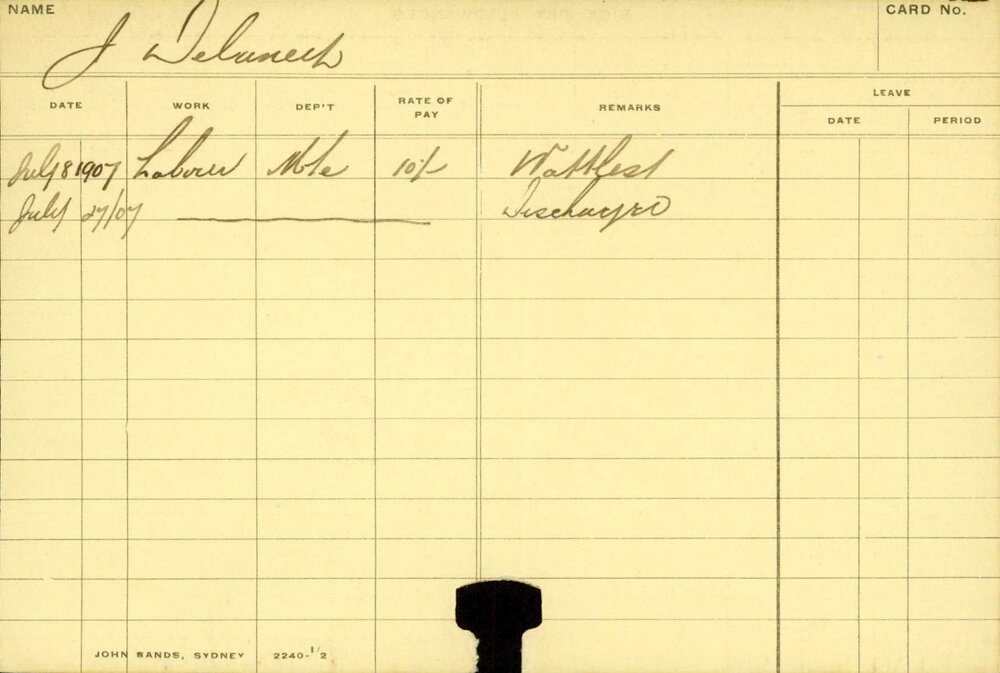 NAME
CARD No.
J
DATE WORK DEP'T RATE OF PAY REMARKS LEAVE
DATE PERIOD
July 8 1907 Labour Mte 10/-
July 27/07 Discharged
JOHN SANDS, SYDNEY 2240-1/2